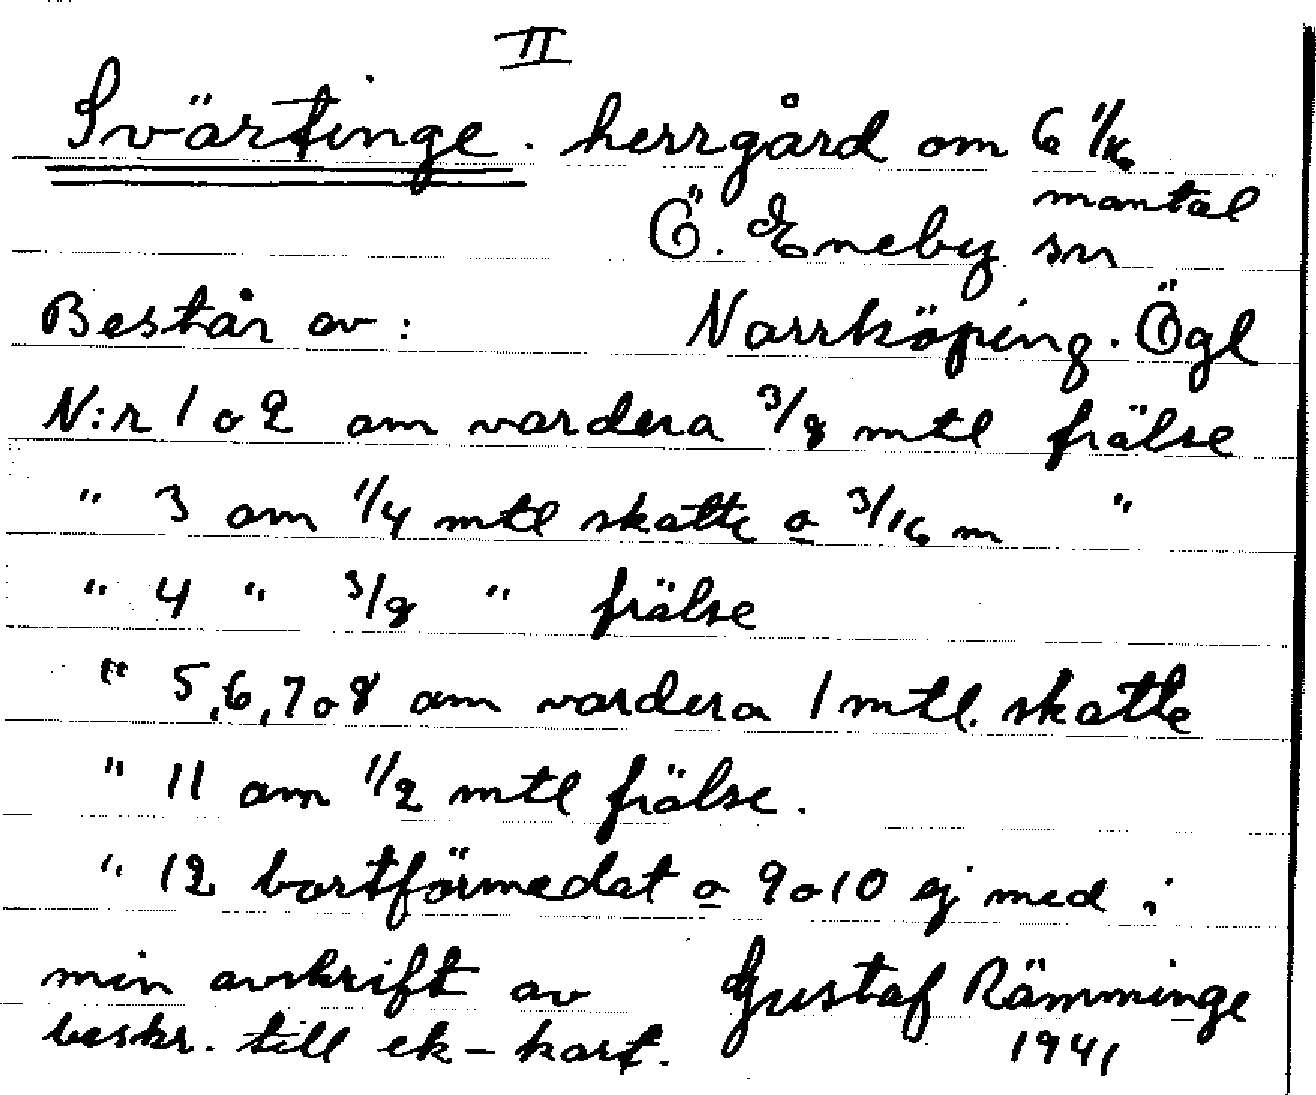 II
Svärtinge. herrgård om 6 1/16
mantal
Ö. Eneby sn
Består av: Norrköping. Ögl
N:r 1 o 2 om vardera 3/8 mtl frälse
" 3 om 1/4 mtl skatte o 3/16 m "
" 4 " 3/8 " frälse
" 5, 6, 7 o 8 om vardera 1 mtl. skatte
" 11 om 1/2 mtl frälse.
" 12 bortförmedlat o 9 o 10 ej med i
min avskrift av Gustaf Rämminge
beskr. till ek-kart. 1941